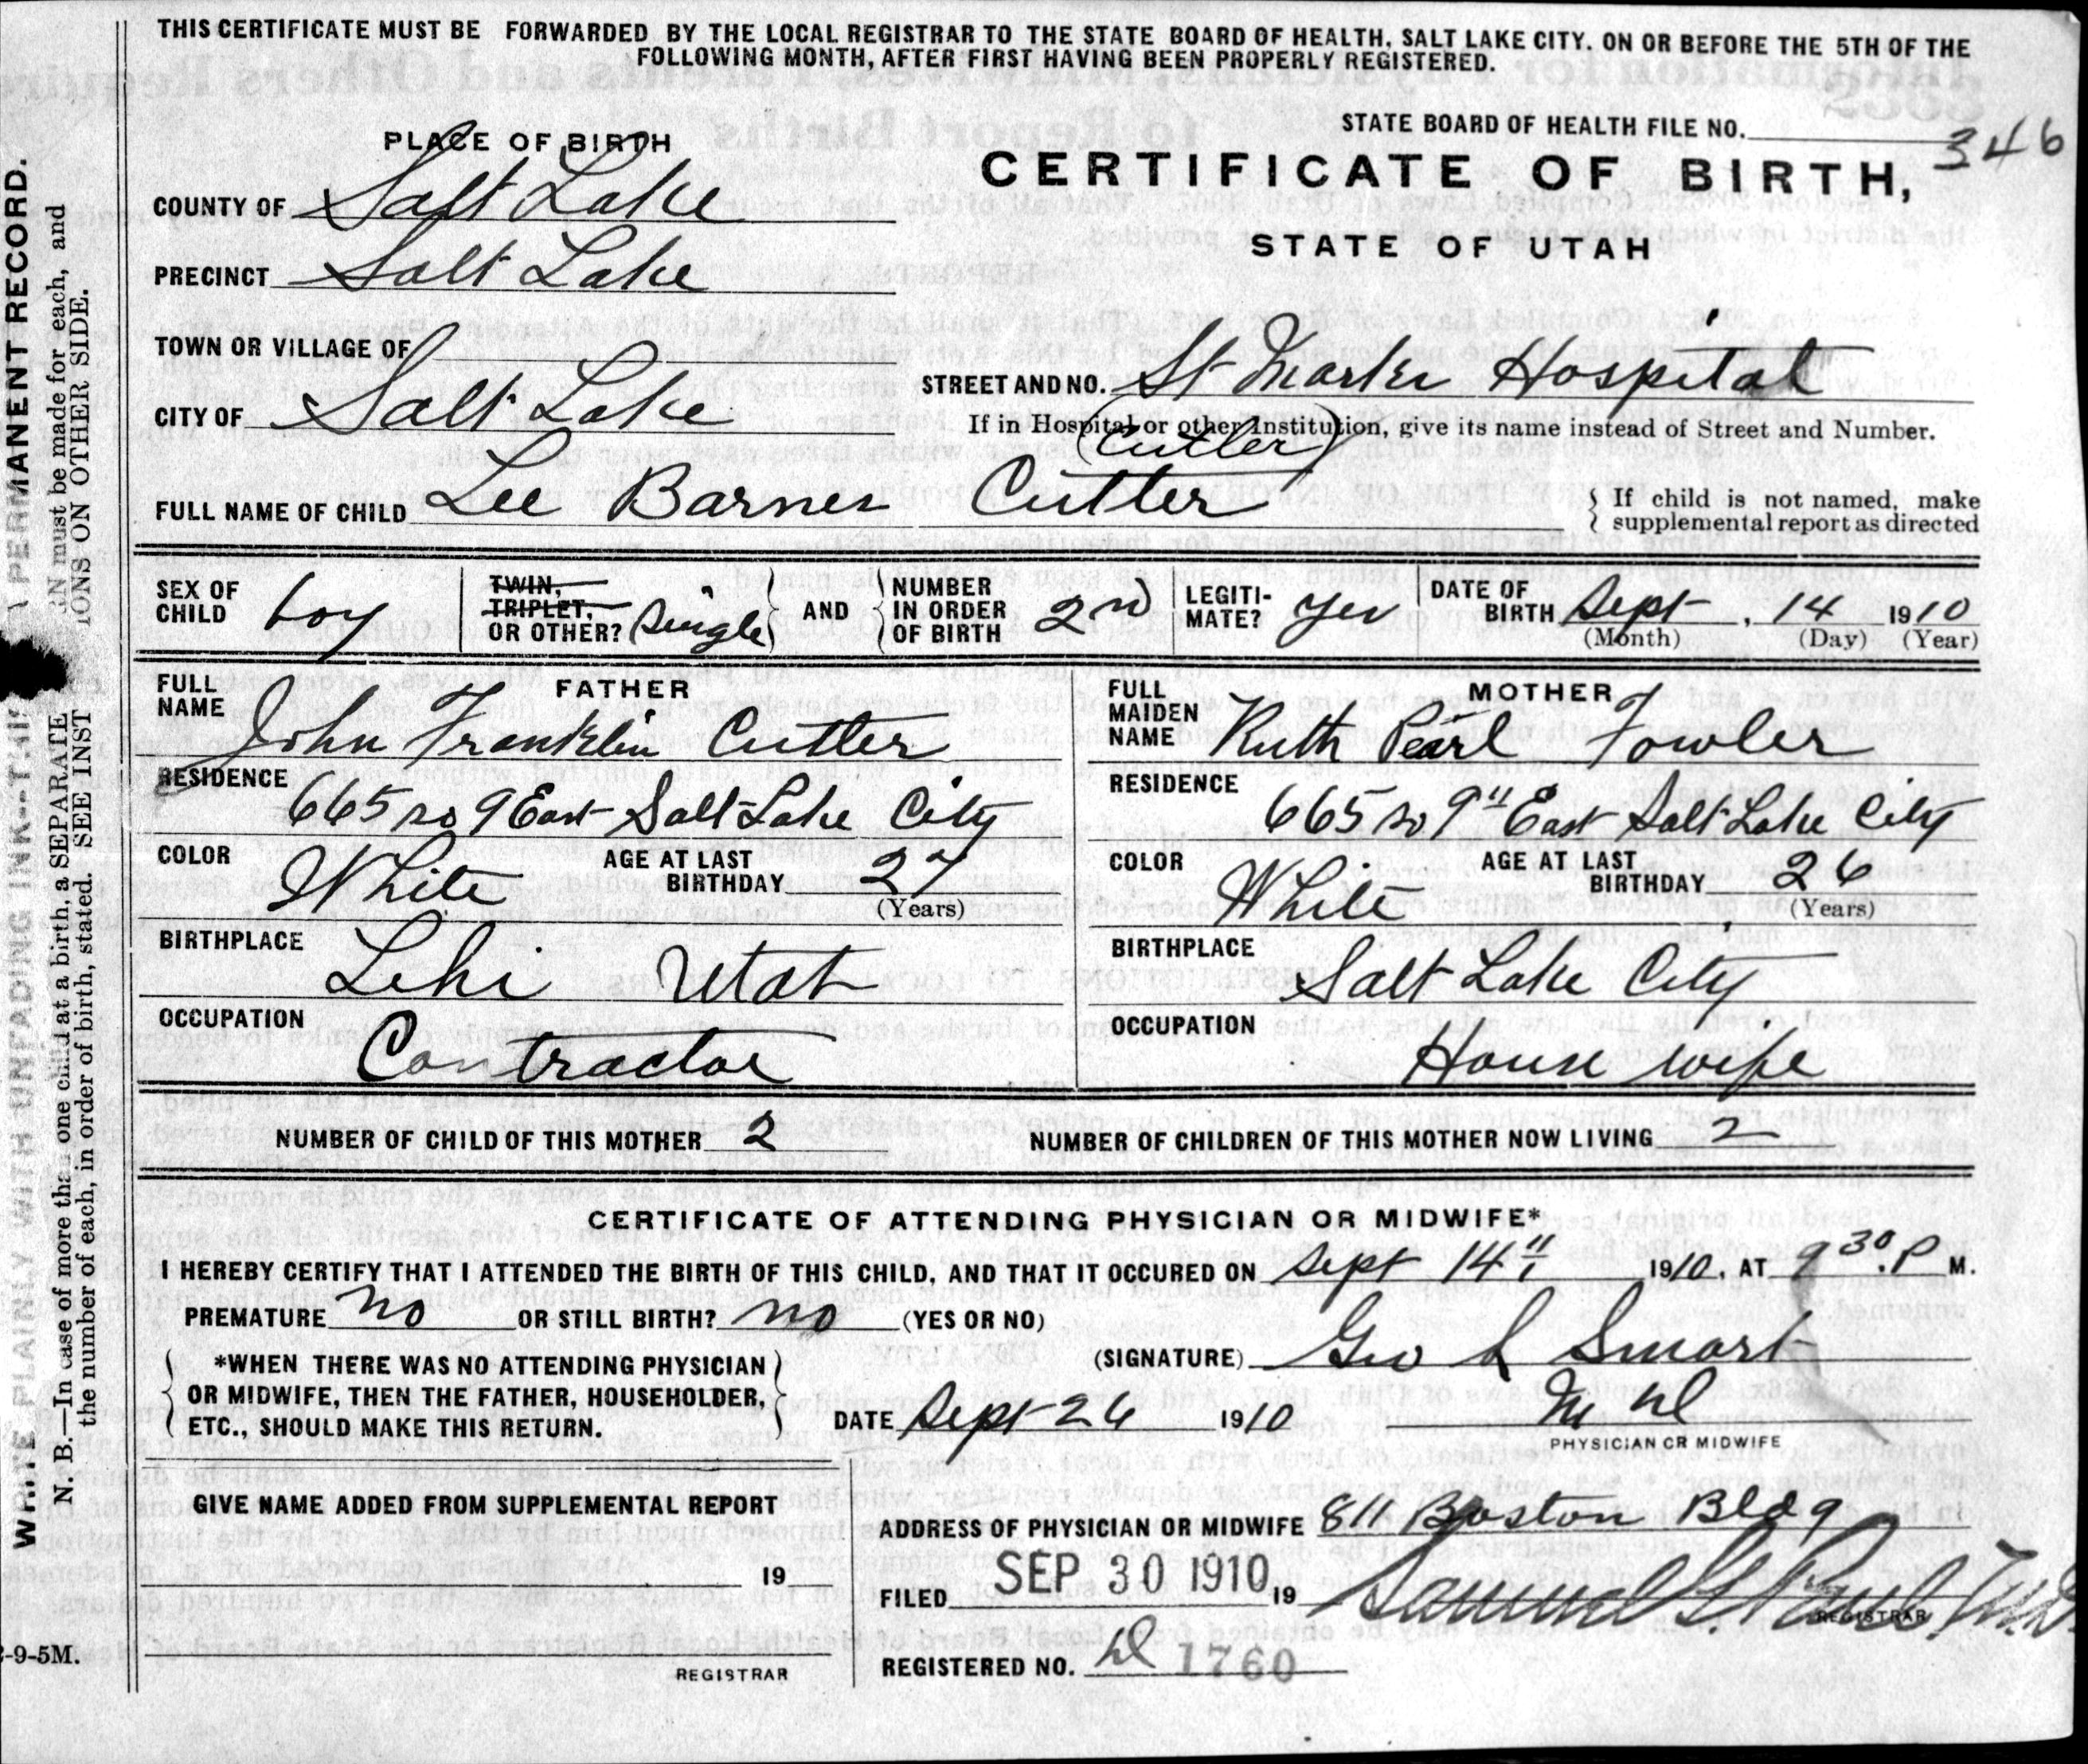 THIS CERTIFICATE MUST BE FORWARDED BY THE LOCAL REGISTRAR TO THE STATE BOARD OF HEALTH, SALT LAKE CITY. ON OR BEFORE THE 5TH OF THE
FOLLOWING MONTH, AFTER FIRST HAVING BEEN PROPERLY REGISTERED.
STATE BOARD OF HEALTH FILE NO. 346
CERTIFICATE OF BIRTH,
STATE OF UTAH
PLACE OF BIRTH
COUNTY OF Salt Lake
PRECINCT Salt Lake
TOWN OR VILLAGE OF
CITY OF Salt Lake
STREET AND NO. St Marks Hospital
If in Hospital or other Institution, give its name instead of Street and Number.
(Cutler)
FULL NAME OF CHILD Lee Barnes Cutler
{ If child is not named, make
supplemental report as directed
SEX OF CHILD boy
TWIN, TRIPLET, OR OTHER? Single
AND
NUMBER IN ORDER OF BIRTH 2nd
LEGITI-MATE? yes
DATE OF BIRTH Sept, 14 1910
(Month) (Day) (Year)
FATHER
FULL NAME John Franklin Cutler
RESIDENCE 665 so 9 East Salt Lake City
COLOR White
AGE AT LAST BIRTHDAY 27
(Years)
BIRTHPLACE Lehi Utah
OCCUPATION Contractor
MOTHER
FULL MAIDEN NAME Ruth Pearl Fowler
RESIDENCE 665 so 9" East Salt Lake City
COLOR White
AGE AT LAST BIRTHDAY 26
(Years)
BIRTHPLACE Salt Lake City
OCCUPATION House wife
NUMBER OF CHILD OF THIS MOTHER 2
NUMBER OF CHILDREN OF THIS MOTHER NOW LIVING 2
CERTIFICATE OF ATTENDING PHYSICIAN OR MIDWIFE*
I HEREBY CERTIFY THAT I ATTENDED THE BIRTH OF THIS CHILD, AND THAT IT OCCURED ON Sept 14" 1910, AT 9 30 P M.
PREMATURE no OR STILL BIRTH? no (YES OR NO)
*WHEN THERE WAS NO ATTENDING PHYSICIAN
OR MIDWIFE, THEN THE FATHER, HOUSEHOLDER,
ETC., SHOULD MAKE THIS RETURN.
(SIGNATURE) Geo S Smart
DATE Sept 26 1910
M D
PHYSICIAN OR MIDWIFE
GIVE NAME ADDED FROM SUPPLEMENTAL REPORT
19
REGISTRAR
ADDRESS OF PHYSICIAN OR MIDWIFE 811 Boston Bldg
FILED SEP 30 1910 19
Samuel G. Paul, M.D.
REGISTRAR
REGISTERED NO. 1760
WRITE PLAINLY WITH UNFADING INK--THIS PERMANENT RECORD.
N. B.—In case of more than one child at a birth, a SEPARATE RN must be made for each, and
the number of each, in order of birth, stated. SEE INST IONS ON OTHER SIDE.
-9-5M.